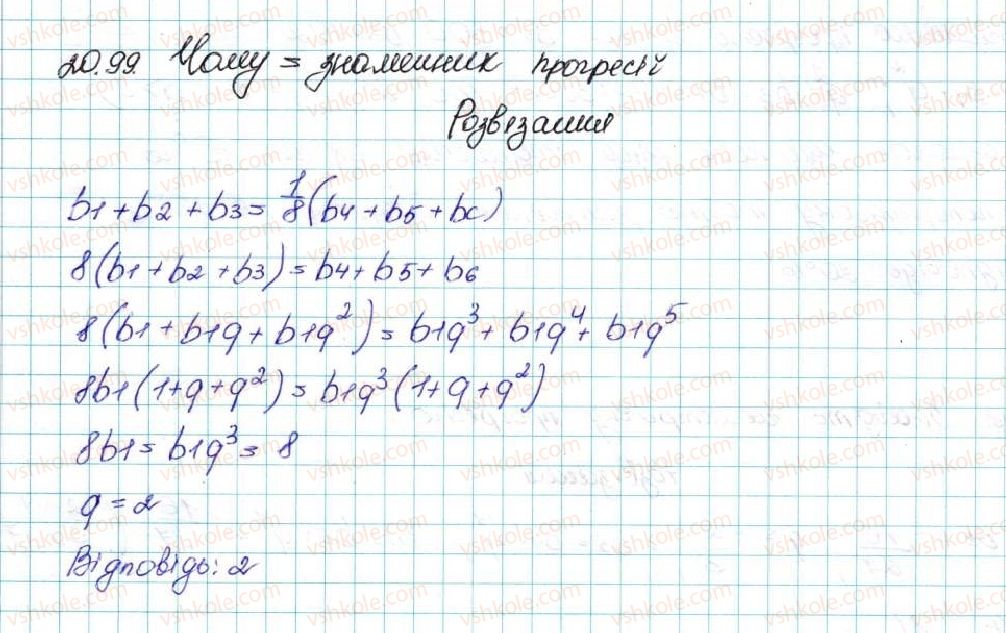 20.99. Чому = знаменник прогресій
Розвязання
b1 + b2 + b3 = 1/8 (b4 + b5 + bc)
8(b1 + b2 + b3) = b4 + b5 + b6
8(b1 + b1q + b1q²) = b1q³ + b1q⁴ + b1q⁵
8b1(1+q+q²) = b1q³(1+q+q²)
8b1 = b1q³ = 8
q = 2
Відповідь: 2